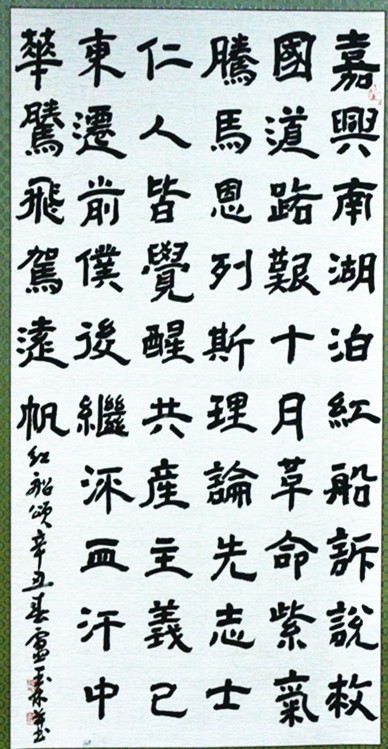 嘉興南湖泊紅船訴說救
國道路艱十月革命紫氣
騰馬恩列斯理論先志士
仁人皆覺醒共産主義已
東遷前僕後繼流血汗中
華騰飛駕遠帆
紅船頌辛丑春